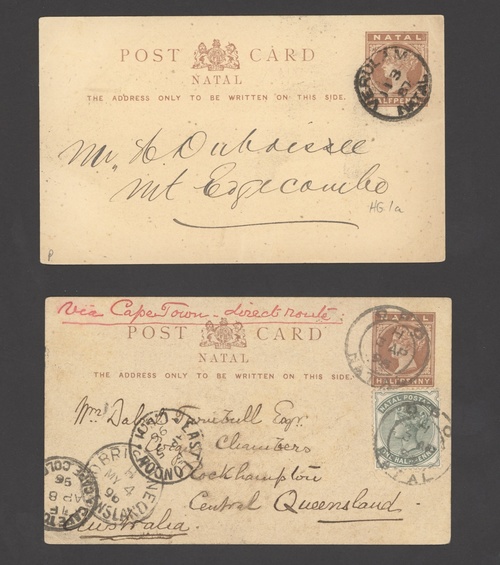 NATAL
POST CARD
NATAL
THE ADDRESS ONLY TO BE WRITTEN ON THIS SIDE.
HALFPENNY
VERULAM
NATAL
Mr A. Dubois
Mt Edgecombe
HG.1a
P
Via Cape Town - direct route:
POST CARD
NATAL
THE ADDRESS ONLY TO BE WRITTEN ON THIS SIDE.
HALFPENNY
NATAL POSTAGE
NATAL
Wm Turnbull Esqr
Chambers
Rockhampton
Central Queensland
Australia
EAST LONDON
BRISBANE
MY 4
96
QUEENSLAND
CAPE TOWN
CAPE COLONY
AP 8
96